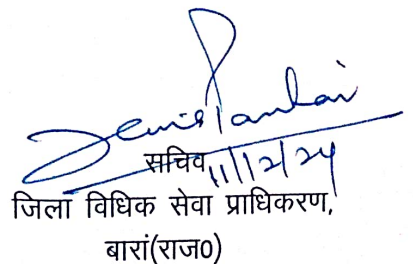 सचिव
11/12/24
जिला विधिक सेवा प्राधिकरण,
बारां(राज0)